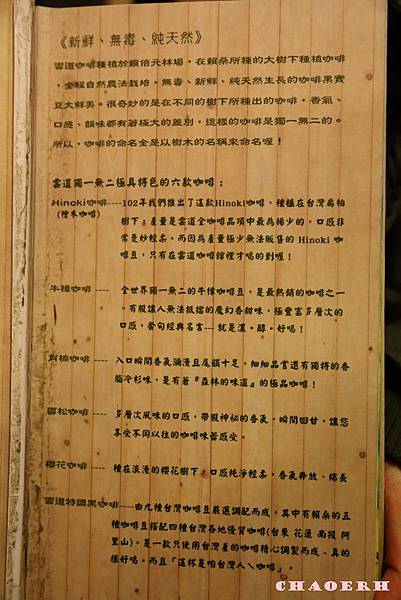 《新鮮、無毒、純天然》
雲道咖啡種植於賴倍元林場，在賴桑所種的大樹下種植咖啡
，全程自然農法栽培，無毒、新鮮、純天然生長的咖啡果實
豆大鮮美。很奇妙的是在不同的樹下所種出的咖啡，香氣、
口感、韻味都有著極大的差別，這樣的咖啡是獨一無二的。
所以，咖啡的命名全是以樹木的名稱來命名喔！
雲道獨一無二極具特色的六款咖啡：
Hinoki咖啡----102年我們推出了這款Hinoki咖啡，種植在台灣扁柏
(檜木咖啡) 樹下，產量是雲道全咖啡品項中最為稀少的，口感非
常是妙輕柔。而因為產量極少無法販售的 Hinoki 咖
啡豆，只有在雲道咖啡館裡才喝的到喔！
牛樟咖啡---- 全世界獨一無二的牛樟咖啡豆，是最熱銷的咖啡之一
，有股讓人無法抵擋的魔幻香甜味，極豐富多層次的
口感，營句經典名言---就是濃。醇。好喝！
肖楠咖啡---- 入口瞬間香氣瀰漫且尾韻十足，細細品嘗還有獨特的香
脂冷杉味，是有著『森林的味道』的極品咖啡！
雪松咖啡---- 多層次風味的口感，帶股神秘的香氣，瞬間回甘，讓您
享受不同以往的咖啡味蕾感受。
櫻花咖啡---- 種在浪漫的櫻花樹下，口感純淨輕柔，香氣奔放、綿長
雲道特調黑咖啡----由九種台灣咖啡豆嚴選調配而成，其中有賴桑的五
種咖啡豆搭配四種台灣各地優質咖啡(台東 花蓮 南投 阿
里山)。是一款只使用台灣產的咖啡精心調製而成、真的
很好喝。而且「這杯是咱台灣人ㄟ咖啡」。
CHAOERH